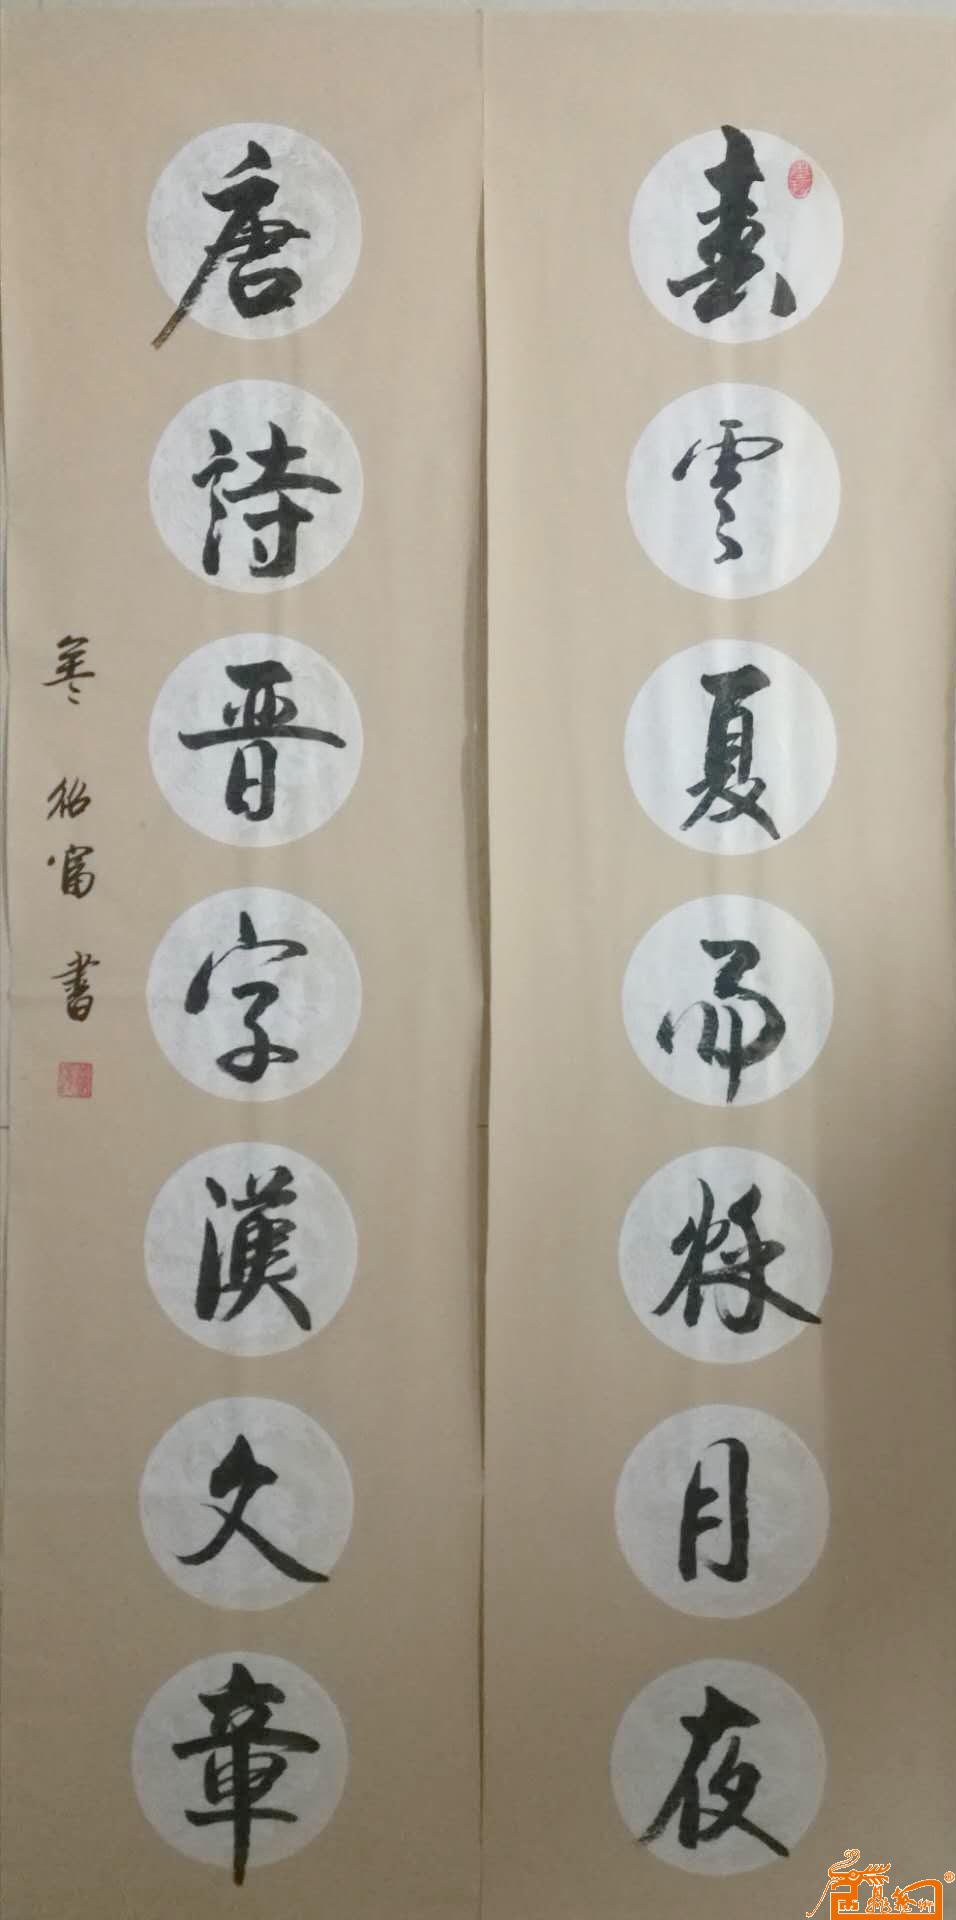 春雲夏雨秋月夜
唐詩晉字漢文章
書